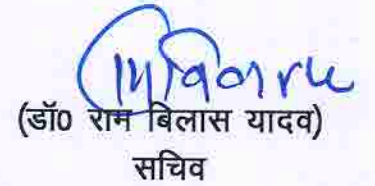 (डॉ0 राम बिलास यादव)
सचिव